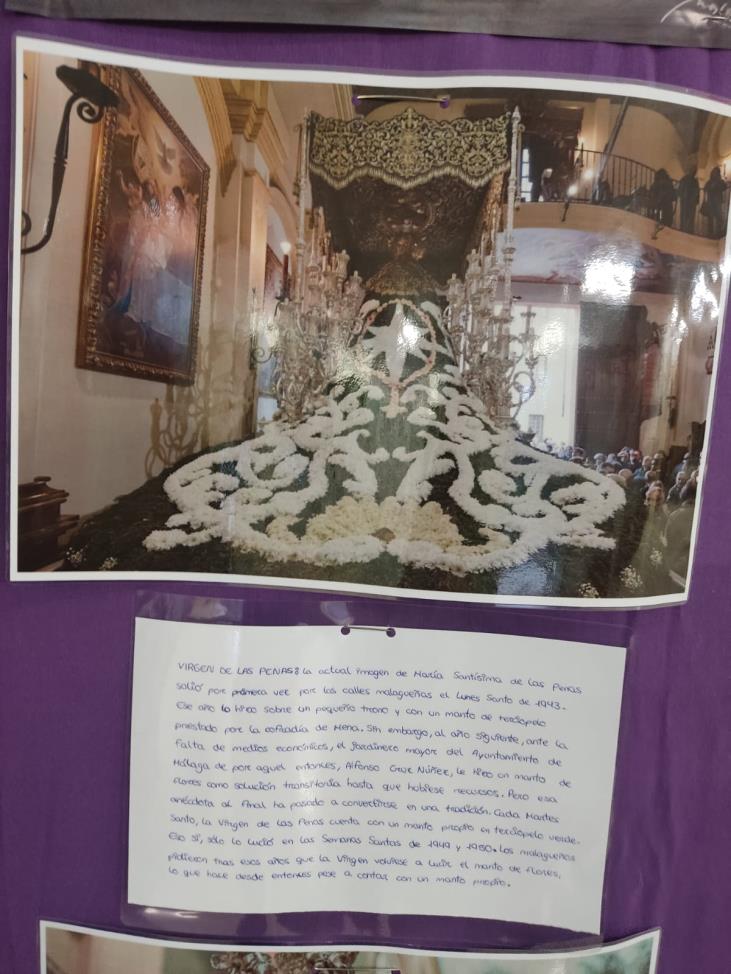 VIRGEN DE LAS PENAS: la actual imagen de María Santísima de las Penas
salió por primera vez por las calles malagueñas el Lunes Santo de 1943.
Ese año lo hizo sobre un pequeño trono y con un manto de terciopelo
prestado por la cofradía de Mena. Sin embargo, al año siguiente, ante la
falta de medios económicos, el jardinero mayor del Ayuntamiento de
Málaga de por aquel entonces, Alfonso Cruz Núñez, le hizo un manto de
flores como solución transitoria hasta que hubiese recursos. Pero esa
anécdota al final ha pasado a convertirse en una tradición. Cada Martes
Santo, la Virgen de las Penas cuenta con un manto propio en terciopelo verde.
Eso sí, sólo lo lució en las Semanas Santas de 1949 y 1950. Los malagueños
pidieron tras esos años que la Virgen volviese a lucir el manto de flores,
lo que hace desde entonces pese a contar con un manto propio.